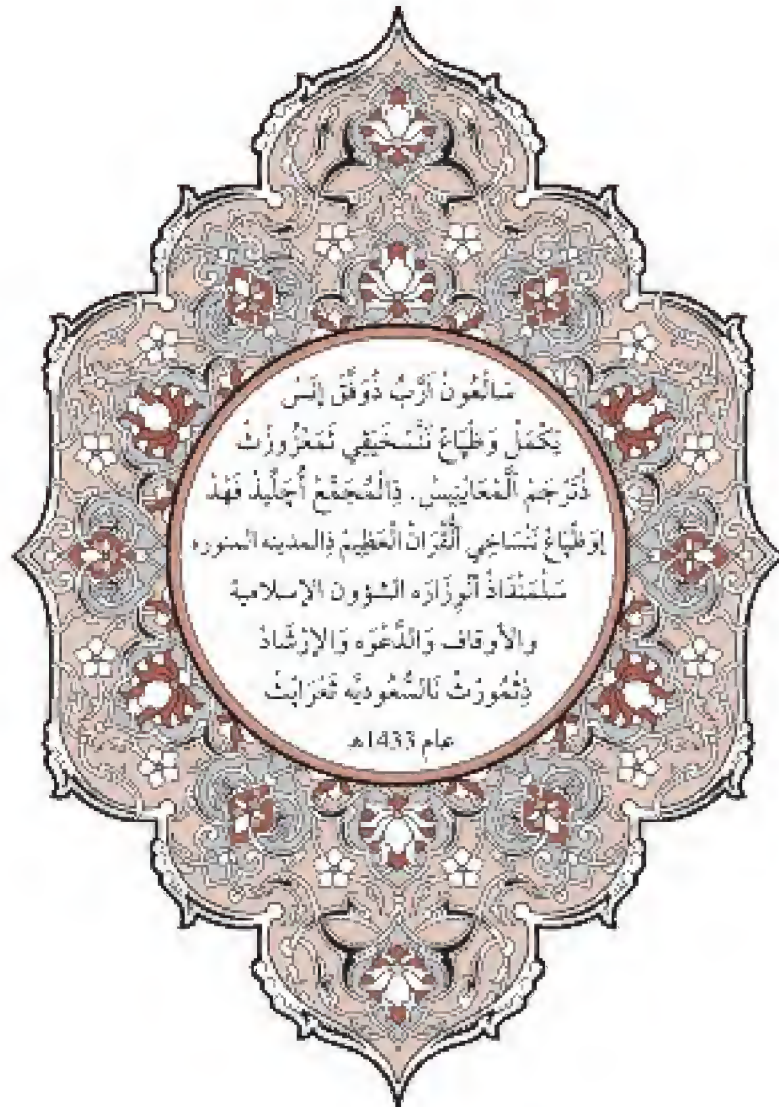 سَالْعُونْ اَرَّبِّ ذُوَفَّقْ إِنَسْ
يَكْمَلْ وَطْبَاعْ نَنَّسْخَيَڨِي تَمَعْزُوزَثْ
ذُتَرْجَمْ اَلْمَعَانِيِيسْ. ذِالْمُجَمَّعْ أُجَلِّيذْ فَهْدْ
إِوَطْبَاعْ نَنْسَاخِي اَلْقُرَانْ الْعَظِيمْ ذِالمدينه المنوره
سَلْمَنْدَاذْ اَلْوِزَارَه الشؤون الإسلامية
والأوقاف وَالدَّعْوَه وَالإِرْشَادْ
ذِثْمُورْثْ نَالسُّعُوديَّه تَعْرَابْثْ
عام 1433هـ